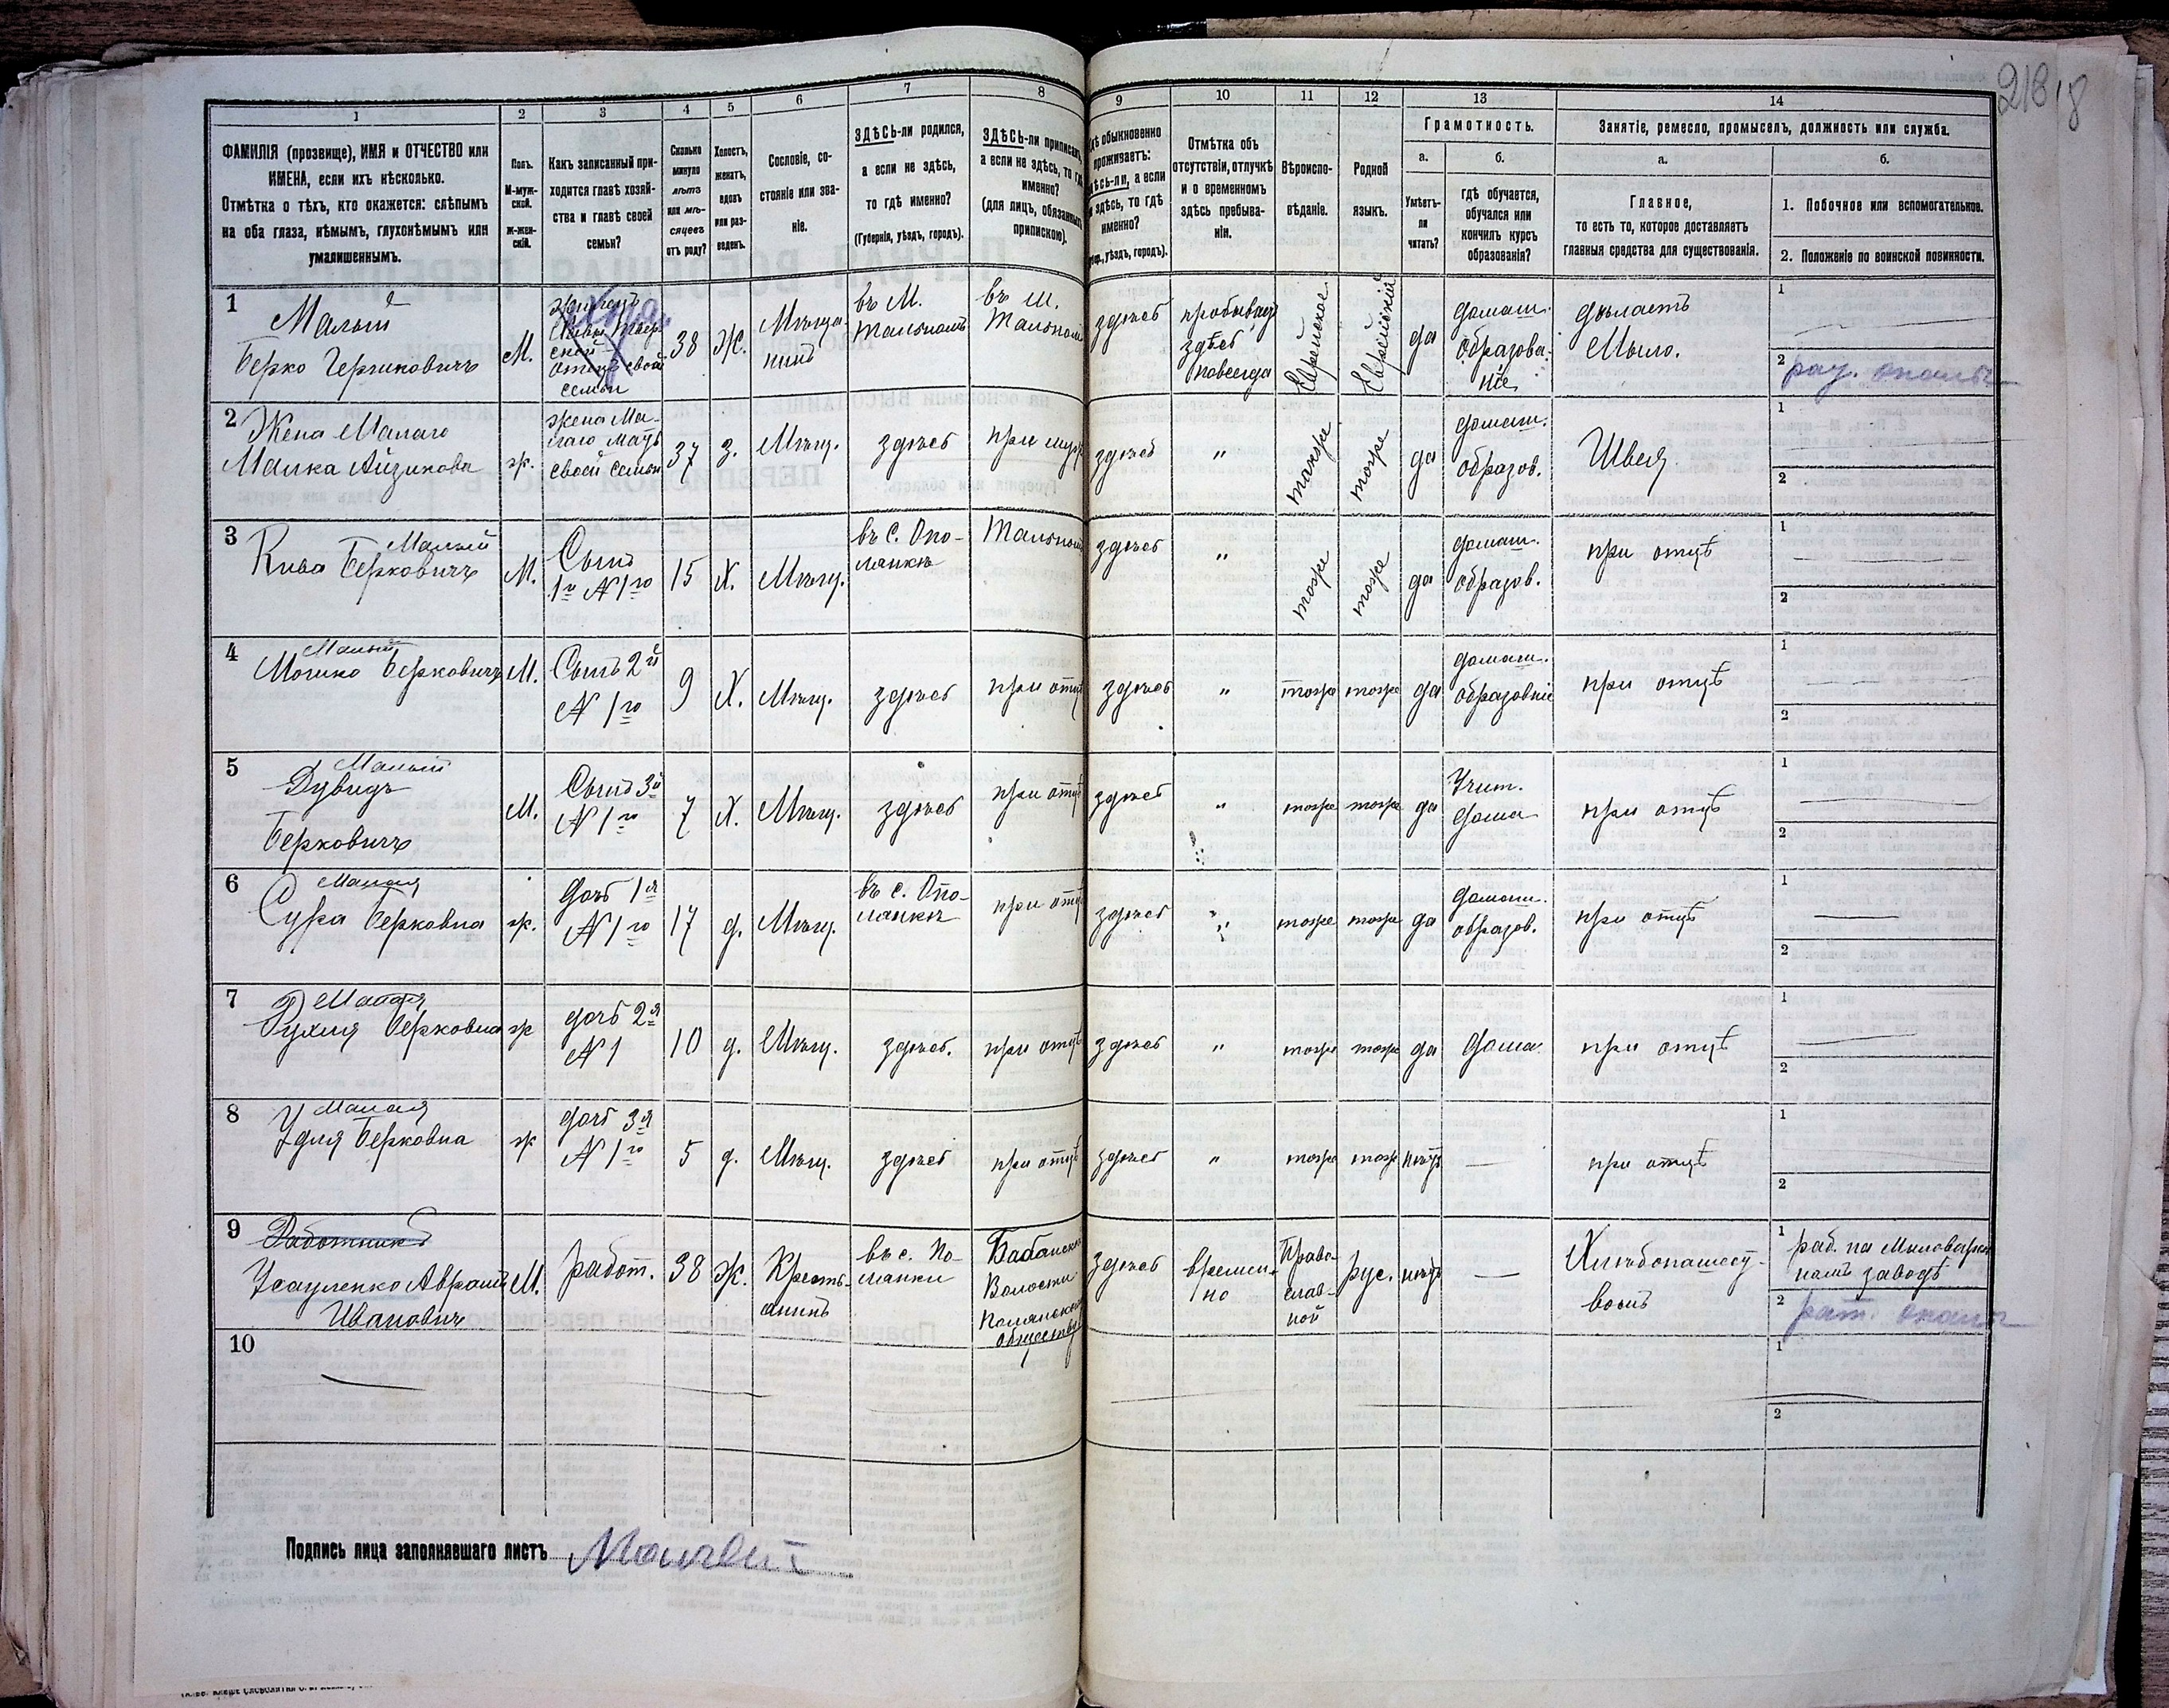 218
1 2 3 4 5 6 7 8 9 10 11 12 13 14
ФАМИЛІЯ (прозвище), ИМЯ и ОТЧЕСТВО или
ИМЕНА, если ихъ нѣсколько.
Отмѣтка о тѣхъ, кто окажется: слѣпымъ
на оба глаза, нѣмымъ, глухонѣмымъ или
умалишеннымъ.
Полъ.
М-муж-
ской.
Ж-жен-
скій.
Какъ записанный при-
ходится главѣ хозяй-
ства и главѣ своей
семьи?
Сколько
минуло
лѣтъ
или мѣ-
сяцевъ
отъ роду?
Холостъ,
женатъ,
вдовъ
или раз-
веденъ.
Сословіе, со-
стояніе или зва-
ніе.
ЗДѢСЬ-ли родился,
а если не здѣсь,
то гдѣ именно?
(Губернія, уѣздъ, городъ).
ЗДѢСЬ-ли приписанъ,
а если не здѣсь, то гдѣ
именно?
(для лицъ, обязанныхъ
припискою).
обыкновенно
проживаетъ:
а если
здѣсь, то гдѣ
именно?
уѣздъ, городъ).
Отмѣтка объ
отсутствіи, отлучкѣ
и о временномъ
здѣсь пребыва-
ніи.
Вѣроиспо-
вѣданіе.
Родной
языкъ.
Грамотность.
а. б.
Умѣетъ-
ли
читать?
Гдѣ обучается,
обучался или
кончилъ курсъ
образованія?
Занятіе, ремесло, промыселъ, должность или служба.
а. б.
Главное,
то есть то, которое доставляетъ
главныя средства для существованія.
1. Побочное или вспомогательное.
2. Положеніе по воинской повинности.
1
Малый
Берко Гершковичъ
М.
своей
семьи
38
Ж.
Мѣща
нинъ
въ М.
Тальномъ
въ м.
Тальномъ
здѣсь
пробываетъ
здѣсь
навсегда
Еврейское
Еврейскій
да
домаш.
образова-
ніе
дѣлаетъ
Мыло.
1
2
2
Жена Малаго
Малка Айзикова
ж.
жена Ма-
лаго мать
своей семьи
37
з.
Мѣщ.
здѣсь
при мужѣ
здѣсь
"
тоже
тоже
да
домаш.
образов.
Швея
1
2
3
Малый
Кива Берковичъ
М.
Сынъ
1й №1го
15
Х.
Мѣщ.
въ с. Опо-
ланкѣ
Тальномъ
здѣсь
"
тоже
тоже
да
домаш.
образов.
при отцѣ
1
2
4
Малый
Мошко Берковичъ
М.
Сынъ 2й
№ 1го
9
Х.
Мѣщ.
здѣсь
при отцѣ
здѣсь
"
тоже
тоже
да
домаш.
образовніе
при отцѣ
1
2
5
Малый
Дувидъ
Берковичъ
М.
Сынъ 3й
№ 1го
7
Х.
Мѣщ.
здѣсь
при отцѣ
здѣсь
"
тоже
тоже
да
Учит.
дома
при отцѣ
1
2
6
Малая
Сура Берковна
ж.
дочь 1я
№ 1го
17
д.
Мѣщ.
въ с. Опо-
ланкѣ
при отцѣ
здѣсь
"
тоже
тоже
да
домаш.
образов.
при отцѣ
1
2
7
Малая
Рухля Берковна
ж
дочь 2я
№ 1
10
д.
Мѣщ.
здѣсь.
при отцѣ
здѣсь
"
тоже
тоже
да
дома
при отцѣ
1
2
8
Малая
Удля Берковна
ж
дочь 3я
№ 1го
5
д.
Мѣщ.
здѣсь
при отцѣ
здѣсь
"
тоже
тоже
нѣтъ
при отцѣ
1
2
9
Работникъ
Усауленко Аврамъ
Ивановичъ
М.
работ.
38
Ж.
Кресть-
янинъ
въ с. По-
ланки
Бабанской
Волости
обществу
здѣсь
времен-
но
Право-
слав-
ной
рус.
нѣтъ
Хлѣбопашест-
вомъ
1
раб. на Миловарен
номъ заводѣ
2
10
1
2
Подпись лица заполнявшаго листъ
Малый